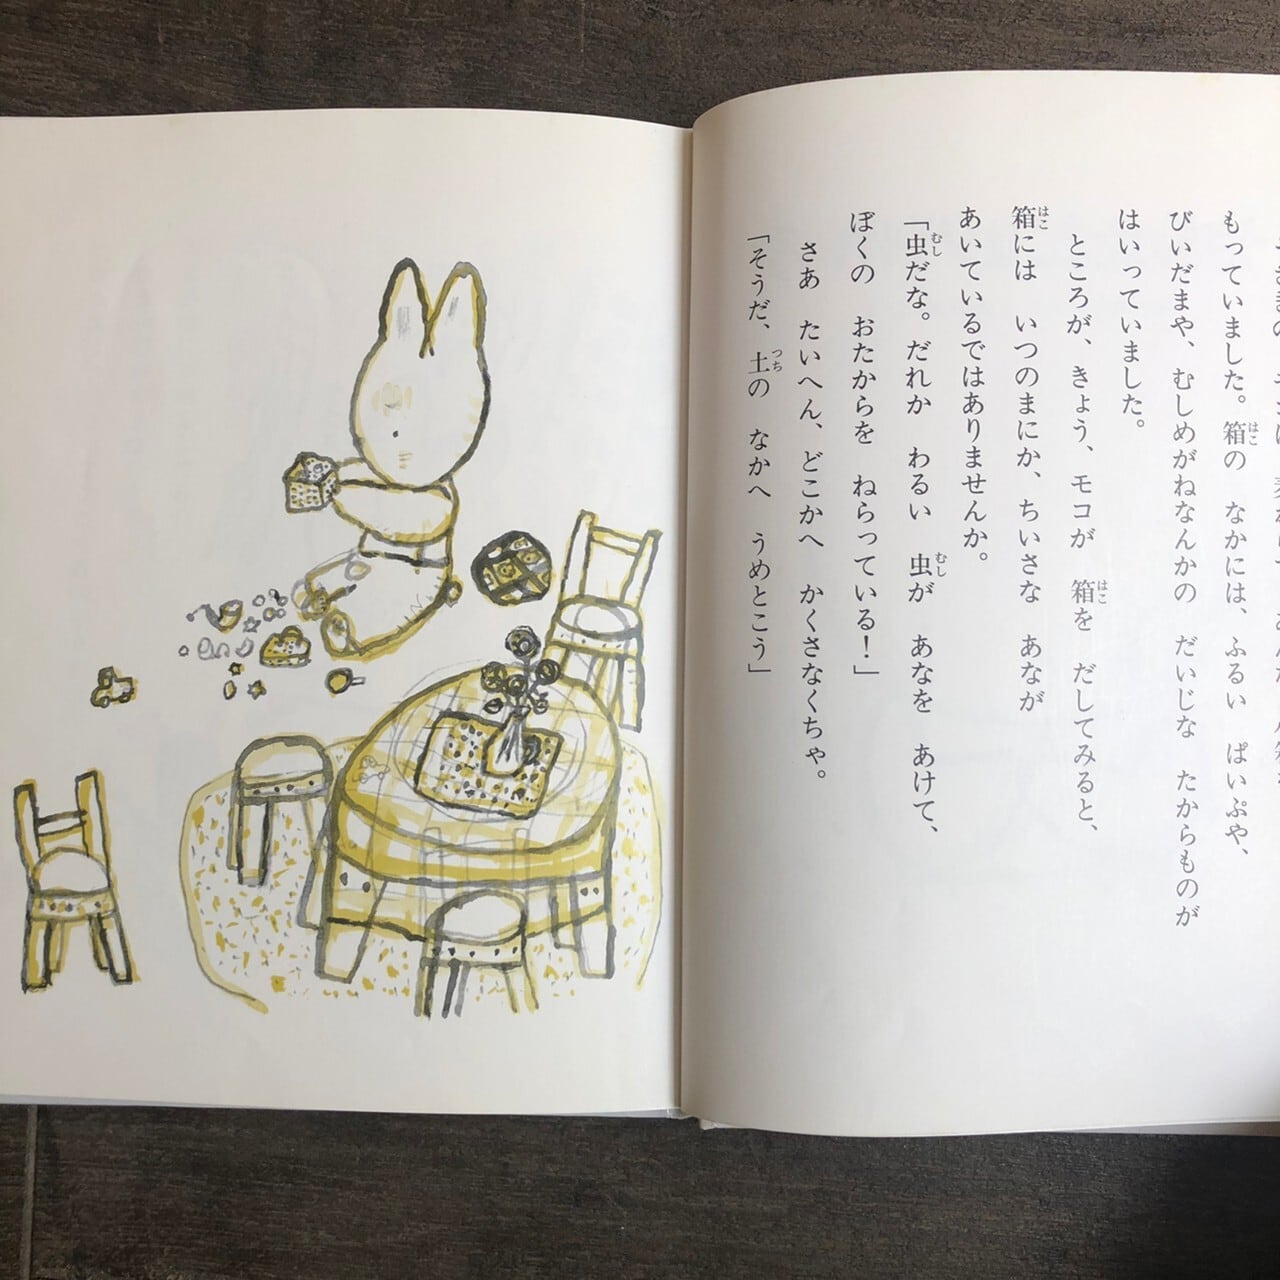 もっていました。箱の なかには、ふるい ぱいぷや、
びいだまや、むしめがねなんかの だいじな たからものが
はいっていました。
ところが、きょう、モコが 箱を だしてみると、
箱には いつのまにか、ちいさな あなが
あいているではありませんか。
「虫だな。だれか わるい 虫が あなを あけて、
ぼくの おたからを ねらっている！」
さあ たいへん、どこかへ かくさなくちゃ。
「そうだ、土の なかへ うめとこう」